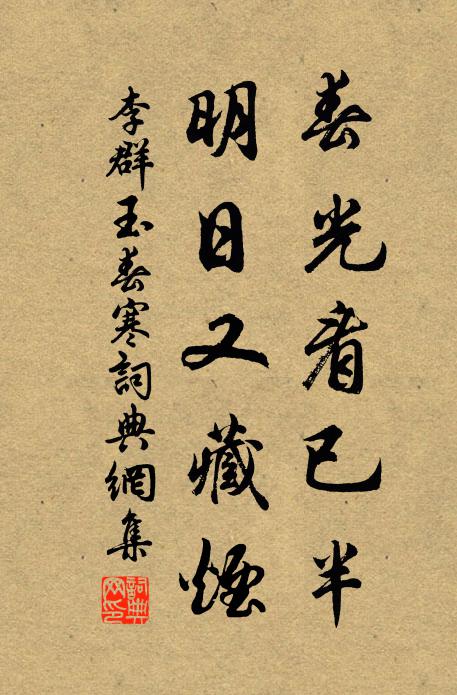 春光看已半
明日又藏煙
李群玉春寒詞典網集
詞典網印